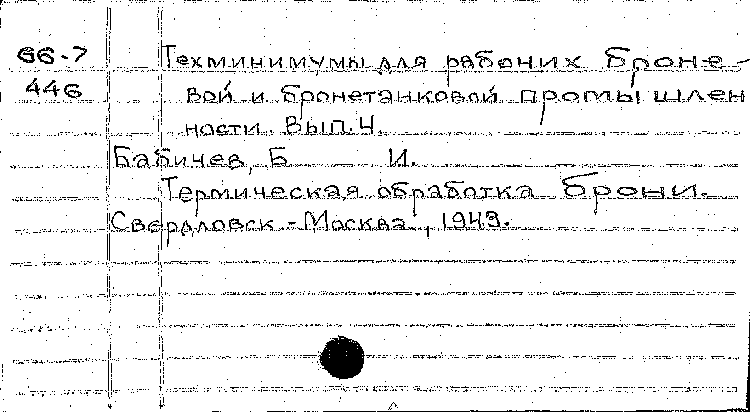 66-7 Техминимумы для рабочих броне-
446 вой и бронетанковой промышлен
ности. Вып. 4.
Бабичев, Б И.
Термическая обработка брони.
Свердловск - Москва, 1943.